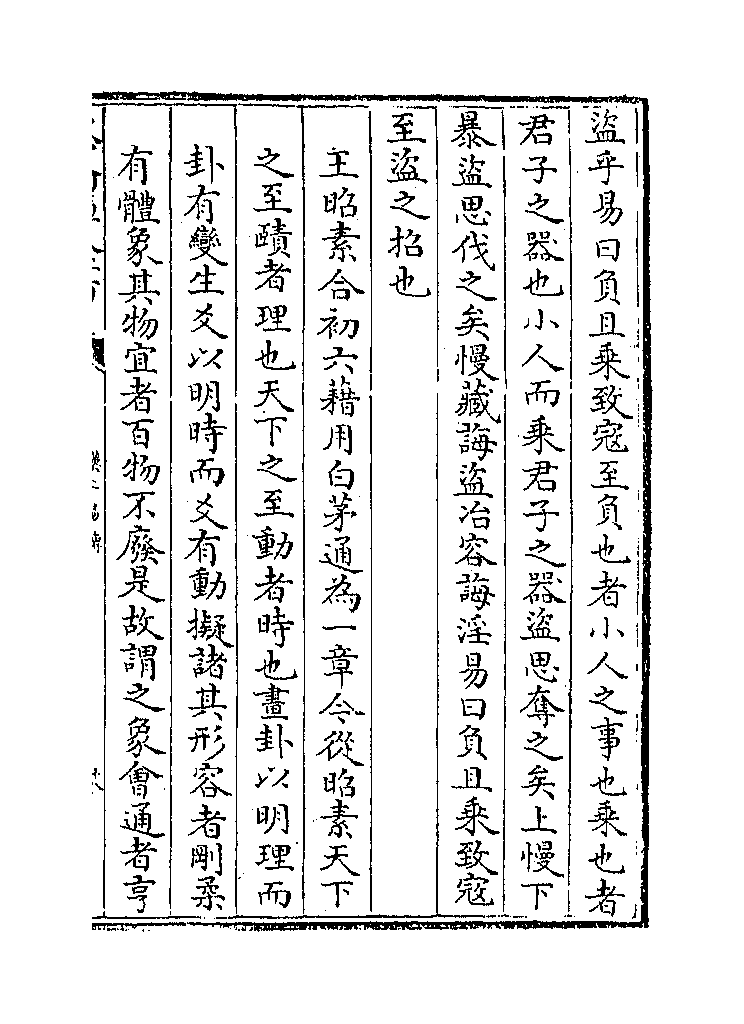 盜乎易曰負且乗致寇至負也者小人之事也乗也者
君子之器也小人而乗君子之器盜思奪之矣上慢下
暴盜思伐之矣慢藏誨盜冶容誨淫易曰負且乗致寇
至盜之招也
王昭素合初六藉用白茅通為一章今從昭素天下
之至賾者理也天下之至動者時也畫卦以明理而
卦有變生爻以明時而爻有動擬諸其形容者剛柔
有體象其物宜者百物不廢是故謂之象㑹通者亨